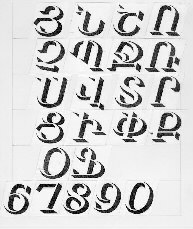 ՅՆՇՈ
ՉՊՋՌ
ՍՎՏՐ
ՑՒՓՔ
ՕՖ
67890